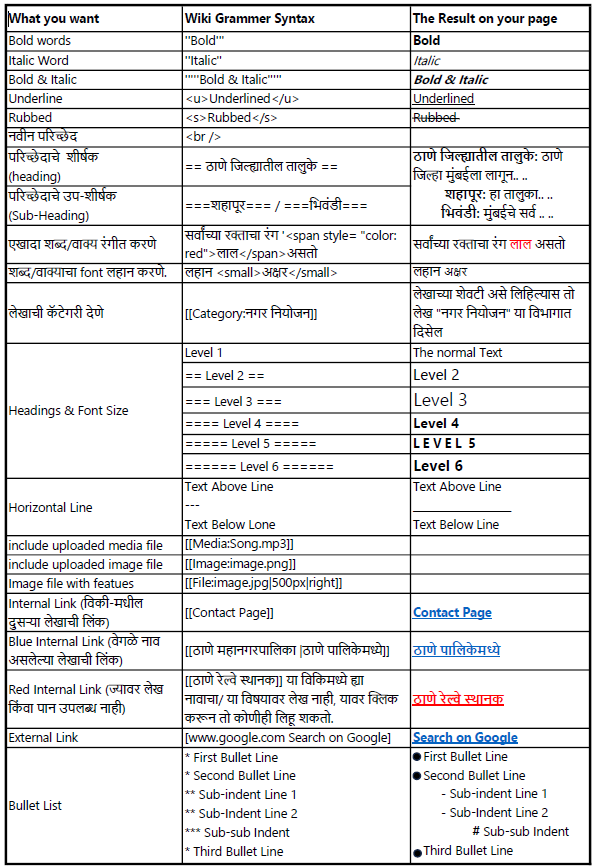 What you want Wiki Grammer Syntax The Result on your page
Bold words "Bold'" Bold
Italic Word "Italic" Italic
Bold & Italic '""Bold & Italic"'" Bold & Italic
Underline <u>Underlined</u> Underlined
Rubbed <s>Rubbed</s> Rubbed
नवीन परिच्छेद <br />
परिच्छेदाचे शीर्षक
(heading)
== ठाणे जिल्ह्यातील तालुके ==
ठाणे जिल्ह्यातील तालुके: ठाणे
जिल्हा मुंबईला लागून.. ..
परिच्छेदाचे उप-शीर्षक
(Sub-Heading)
===शहापूर=== / ===भिवंडी===
शहापूर: हा तालुका.. ..
भिवंडी: मुंबईचे सर्व .. ..
एखादा शब्द/वाक्य रंगीत करणे
सर्वांच्या रक्ताचा रंग '<span style= "color:
red">लाल</span>असतो
सर्वांच्या रक्ताचा रंग लाल असतो
शब्द/वाक्याचा font लहान करणे. लहान <small>अक्षर</small> लहान अक्षर
लेखाची कॅटेगरी देणे
[[Category:नगर नियोजन]]
लेखाच्या शेवटी असे लिहिल्यास तो
लेख "नगर नियोजन" या विभागात
दिसेल
Headings & Font Size
Level 1 The normal Text
== Level 2 == Level 2
=== Level 3 === Level 3
==== Level 4 ==== Level 4
===== Level 5 ===== LEVEL 5
====== Level 6 ====== Level 6
Horizontal Line
Text Above Line
---
Text Below Lone
Text Above Line
Text Below Line
include uploaded media file [[Media:Song.mp3]]
include uploaded image file [[Image:image.png]]
Image file with featues [[File:image.jpg|500px|right]]
Internal Link (विकी-मधील
दुसऱ्या लेखाची लिंक)
[[Contact Page]]
Contact Page
Blue Internal Link (वेगळे नाव
असलेल्या लेखाची लिंक)
[[ठाणे महानगरपालिका |ठाणे पालिकेमध्ये]]
ठाणे पालिकेमध्ये
Red Internal Link (ज्यावर लेख
किंवा पान उपलब्ध नाही)
[[ठाणे रेल्वे स्थानक]] या विकिमध्ये ह्या
नावाचा/ या विषयावर लेख नाही, यावर क्लिक
करून तो कोणीही लिहू शकतो.
ठाणे रेल्वे स्थानक
External Link [www.google.com Search on Google] Search on Google
Bullet List
* First Bullet Line
* Second Bullet Line
** Sub-indent Line 1
** Sub-Indent Line 2
*** Sub-sub Indent
* Third Bullet Line
● First Bullet Line
● Second Bullet Line
- Sub-indent Line 1
- Sub-Indent Line 2
# Sub-sub Indent
● Third Bullet Line